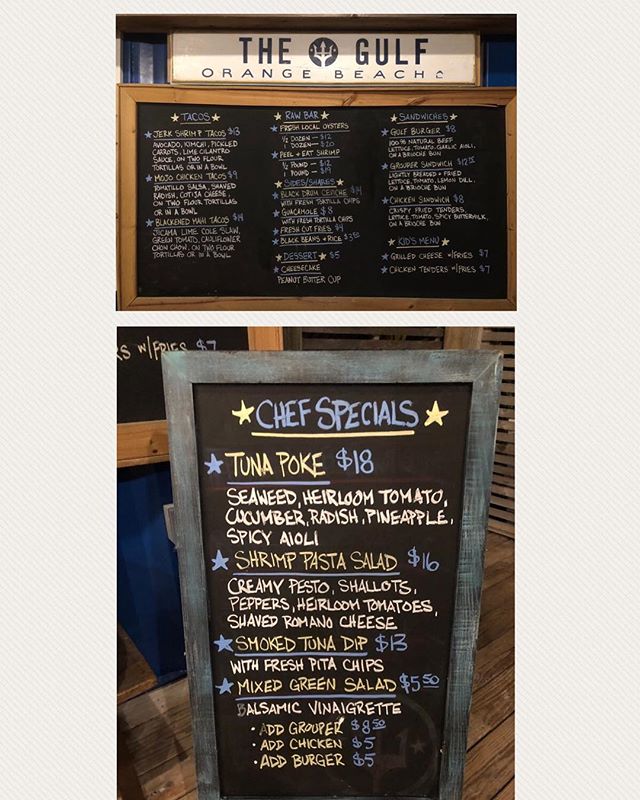 THE GULF
ORANGE BEACH
TACOS
JERK SHRIMP TACOS $13
AVOCADO, KIMCHI, PICKLED
CARROTS, LIME CILANTRO
SAUCE, ON TWO FLOUR
TORTILLAS OR IN A BOWL
MOJO CHICKEN TACOS $9
TOMATILLO SALSA, SHAVED
RADISH, COTIJA CHEESE
ON TWO FLOUR TORTILLAS
OR IN A BOWL
BLACKENED MAHI TACOS $14
JICAMA LIME COLE SLAW,
GREEN TOMATO, CAULIFLOWER
CHOW CHOW, ON TWO FLOUR
TORTILLAS OR IN A BOWL
RAW BAR
FRESH LOCAL OYSTERS
½ DOZEN - $12
1 DOZEN - $20
PEEL + EAT SHRIMP
½ POUND - $12
1 POUND - $19
SIDES/SHARES
BLACK DRUM CEVICHE $14
WITH FRESH TORTILLA CHIPS
GUACAMOLE $8
WITH FRESH TORTILLA CHIPS
FRESH CUT FRIES $4
BLACK BEANS + RICE $3.50
DESSERT $5
CHEESECAKE
PEANUT BUTTER CUP
SANDWICHES
GULF BURGER $8
100% NATURAL BEEF
LETTUCE, TOMATO, GARLIC AIOLI,
ON A BRIOCHE BUN
GROUPER SANDWICH $12.50
LIGHTLY BREADED + FRIED
LETTUCE, TOMATO, LEMON DILL,
ON A BRIOCHE BUN
CHICKEN SANDWICH $8
CRISPY FRIED TENDERS,
LETTUCE, TOMATO, SPICY BUTTERMILK,
ON A BRIOCHE BUN
KID'S MENU
GRILLED CHEESE W/FRIES $7
CHICKEN TENDERS W/FRIES $7
RS W/FRIES $7
CHEF SPECIALS
TUNA POKE $18
SEAWEED, HEIRLOOM TOMATO,
CUCUMBER, RADISH, PINEAPPLE,
SPICY AIOLI
SHRIMP PASTA SALAD $16
CREAMY PESTO, SHALLOTS,
PEPPERS, HEIRLOOM TOMATOES,
SHAVED ROMANO CHEESE
SMOKED TUNA DIP $13
WITH FRESH PITA CHIPS
MIXED GREEN SALAD $5.50
BALSAMIC VINAIGRETTE
• ADD GROUPER $8.50
• ADD CHICKEN $5
• ADD BURGER $5